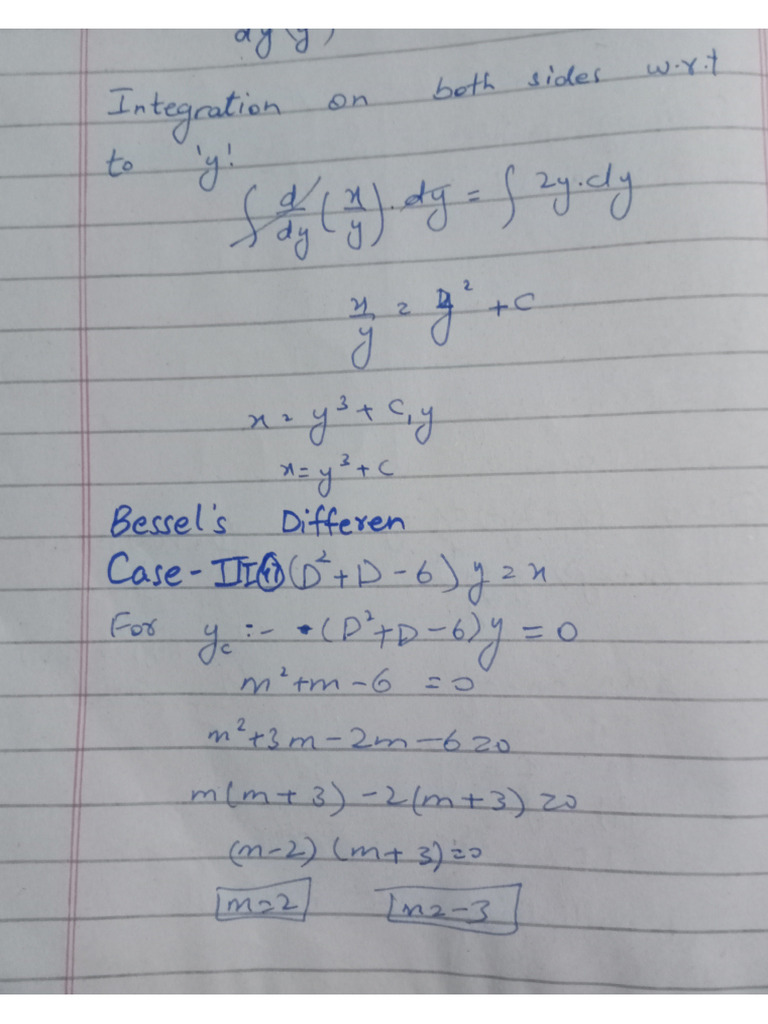 dy y )
Integration on both sides w.r.t
to 'y'
∫ d/dy (x/y) . dy = ∫ 2y.dy
x/y = y² + C
x = y³ + C₁y
x = y³ + C
Bessel's Differen
Case - III (D² + D - 6) y = x
For y꜀ :- (D² + D - 6) y = 0
m² + m - 6 = 0
m² + 3m - 2m - 6 = 0
m(m + 3) - 2(m + 3) = 0
(m - 2) (m + 3) = 0
m = 2 m = -3